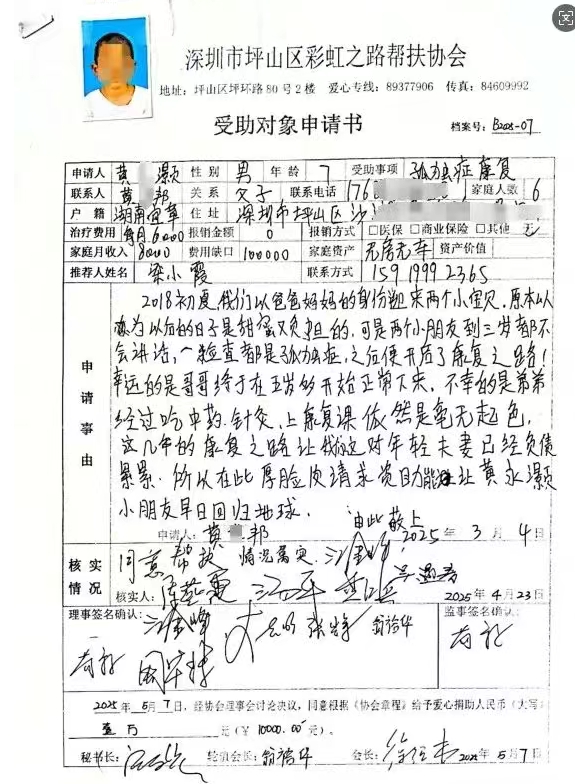 深圳市坪山区彩虹之路帮扶协会
地址：坪山区坪环路80号2楼 爱心专线：89377906 传真：84609992
受助对象申请书
档案号：B2025-07
申请人 黄 灏 性别 男 年龄 7 受助事项 孤独症康复
联系人 黄 邦 关系 父子 联系电话 176 家庭人数 6
户籍 湖南宜章 住址 深圳市坪山区沙
治疗费用 每月6000 报销金额 0 报销方式 □医保 □商业保险 □其他 无
家庭月收入 8000 费用缺口 100000 家庭资产 无房无车 资产价值
推荐人姓名 梁小霞 联系方式 159 1999 2365
申请事由
2018初夏,我们以爸爸妈妈的身份迎来两个小宝贝.原本以
为以后的日子是甜蜜又负担的,可是两个小朋友到三岁都不
会讲话,一检查都是孤独症,之后便开启了康复之路！
幸运的是哥哥终于在五岁的开始正常下来、不幸的是弟弟
经过吃中药、针灸、上康复课依然是毫无起色,
这几年的康复之路让我们这对年轻夫妻已经负债
累累.所以在此厚脸皮请求资助能让黄永灏
小朋友早日回归地球.
由此敬上
申请人：黄 邦 2025年3月4日
核实情况
同意帮扶 情况属实
核实人： 2025年4月23日
理事签名确认： 监事签名确认：
张峰 翁裕华
2025年5月7日，经协会理事会讨论决议，同意根据《协会章程》给予爱心捐助人民币（大写）
壹万 元（￥10000.00元）。
秘书长： 轮值会长：翁裕华 会长： 2025年5月7日